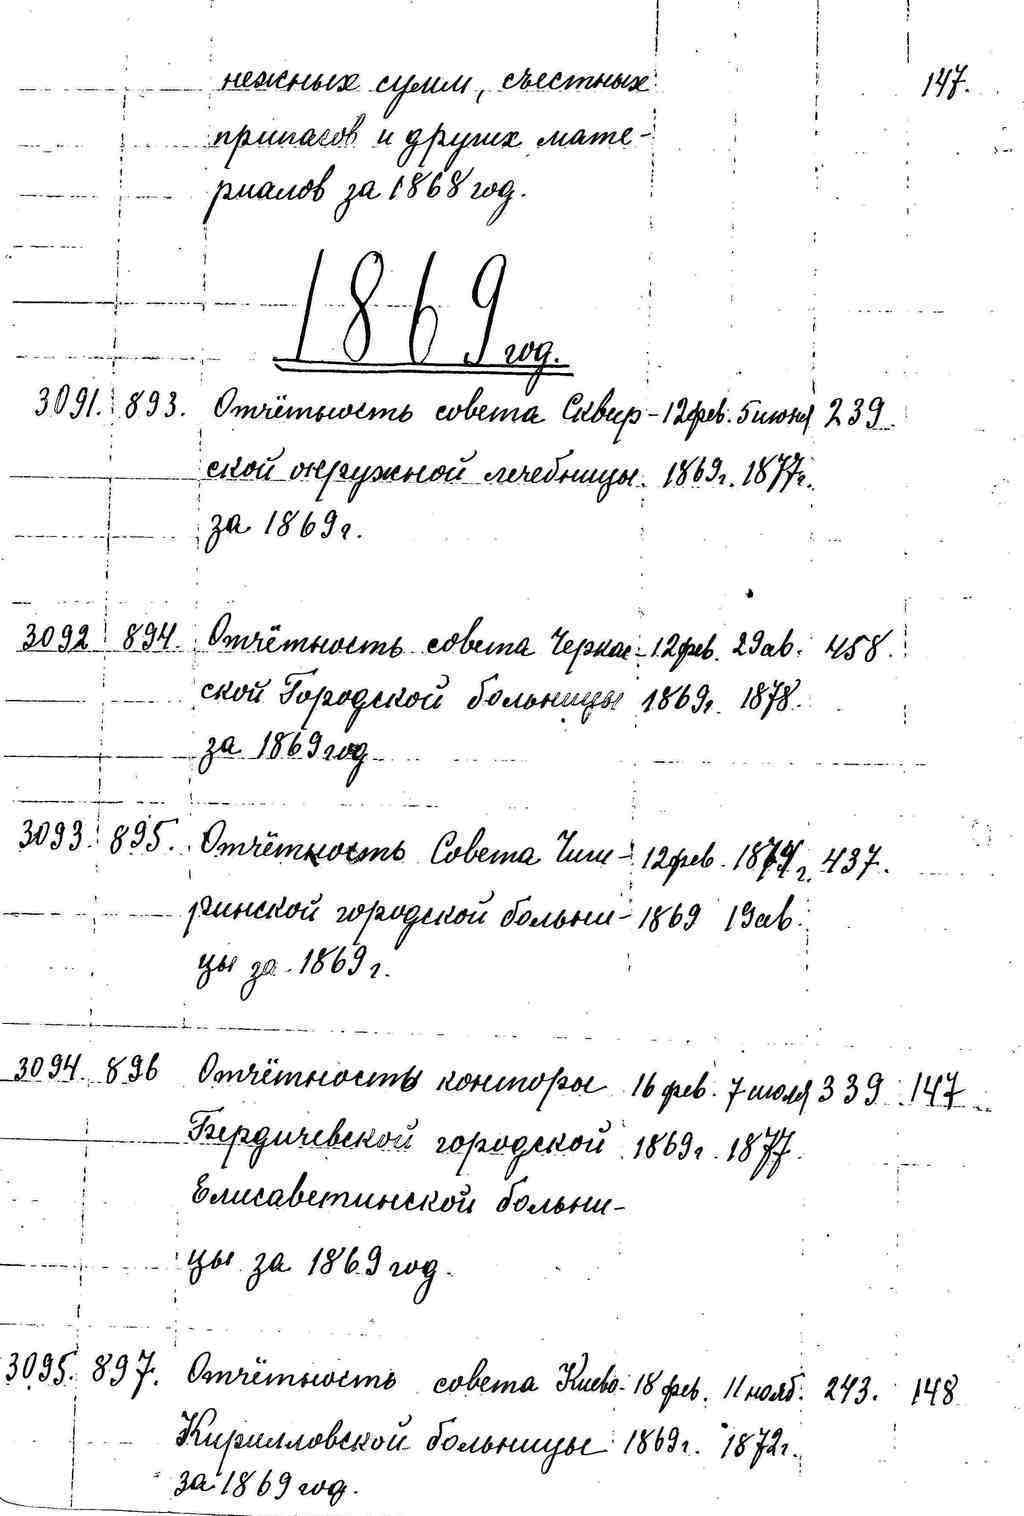 нежных сумм, съестных 147.
припасов и других мате-
риалов за 1868 год.
1869 год.
3091. 893. Отчётность совета Сквир- 12 фев. 5 июня 239.
ской окружной лечебницы 1869г. 1877г.
за 1869г.
3092 894. Отчётность совета Черкас- 12 фев. 29 ав. 458.
ской Городской больницы 1869г. 1878.
за 1869 год
3093. 895. Отчётность Совета Чиги- 12 фев. 1874г. 437.
ринской городской больни- 1869 19 ав.
цы за 1869 г.
3094. 896 Отчётность конторы 16 фев. 7 июля 339 147
Бердичевской городской 1869г. 1877.
Елисаветинской больни-
цы за 1869 год.
3095. 897. Отчётность совета Киево- 18 фев. 11 нояб. 243. 148
Кирилловской больницы 1869г. 1872г.
за 1869 год.